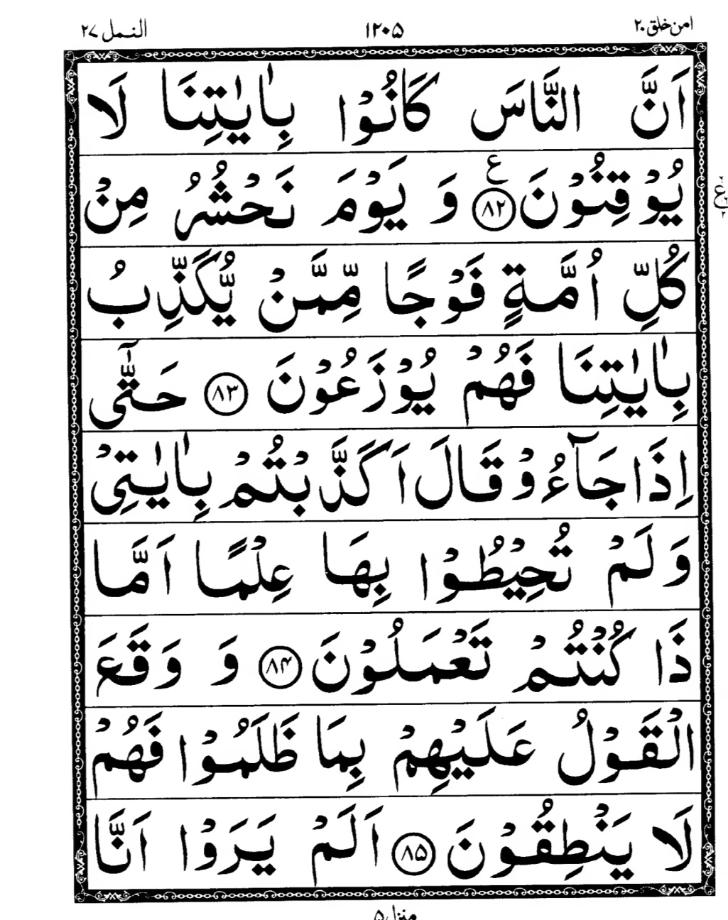 امن خلق ۲۰ ۱۲۰۵ النمل ۲۷
اَنَّ النَّاسَ كَانُوْا بِاٰيٰتِنَا لَا
يُوْقِنُوْنَ ﴿۸۲﴾ ع وَ يَوْمَ نَحْشُرُ مِنْ
كُلِّ اُمَّةٍ فَوْجًا مِّمَّنْ يُّكَذِّبُ
بِاٰيٰتِنَا فَهُمْ يُوْزَعُوْنَ ﴿۸۳﴾ حَتّٰۤى
اِذَا جَآءُوْ قَالَ اَكَذَّبْتُمْ بِاٰيٰتِیْ
وَلَمْ تُحِيْطُوْا بِهَا عِلْمًا اَمَّا
ذَا كُنْتُمْ تَعْمَلُوْنَ ﴿۸۴﴾ وَ وَقَعَ
الْقَوْلُ عَلَيْهِمْ بِمَا ظَلَمُوْا فَهُمْ
لَا يَنْطِقُوْنَ ﴿۸۵﴾ اَلَمْ يَرَوْا اَنَّا
منزل ۵